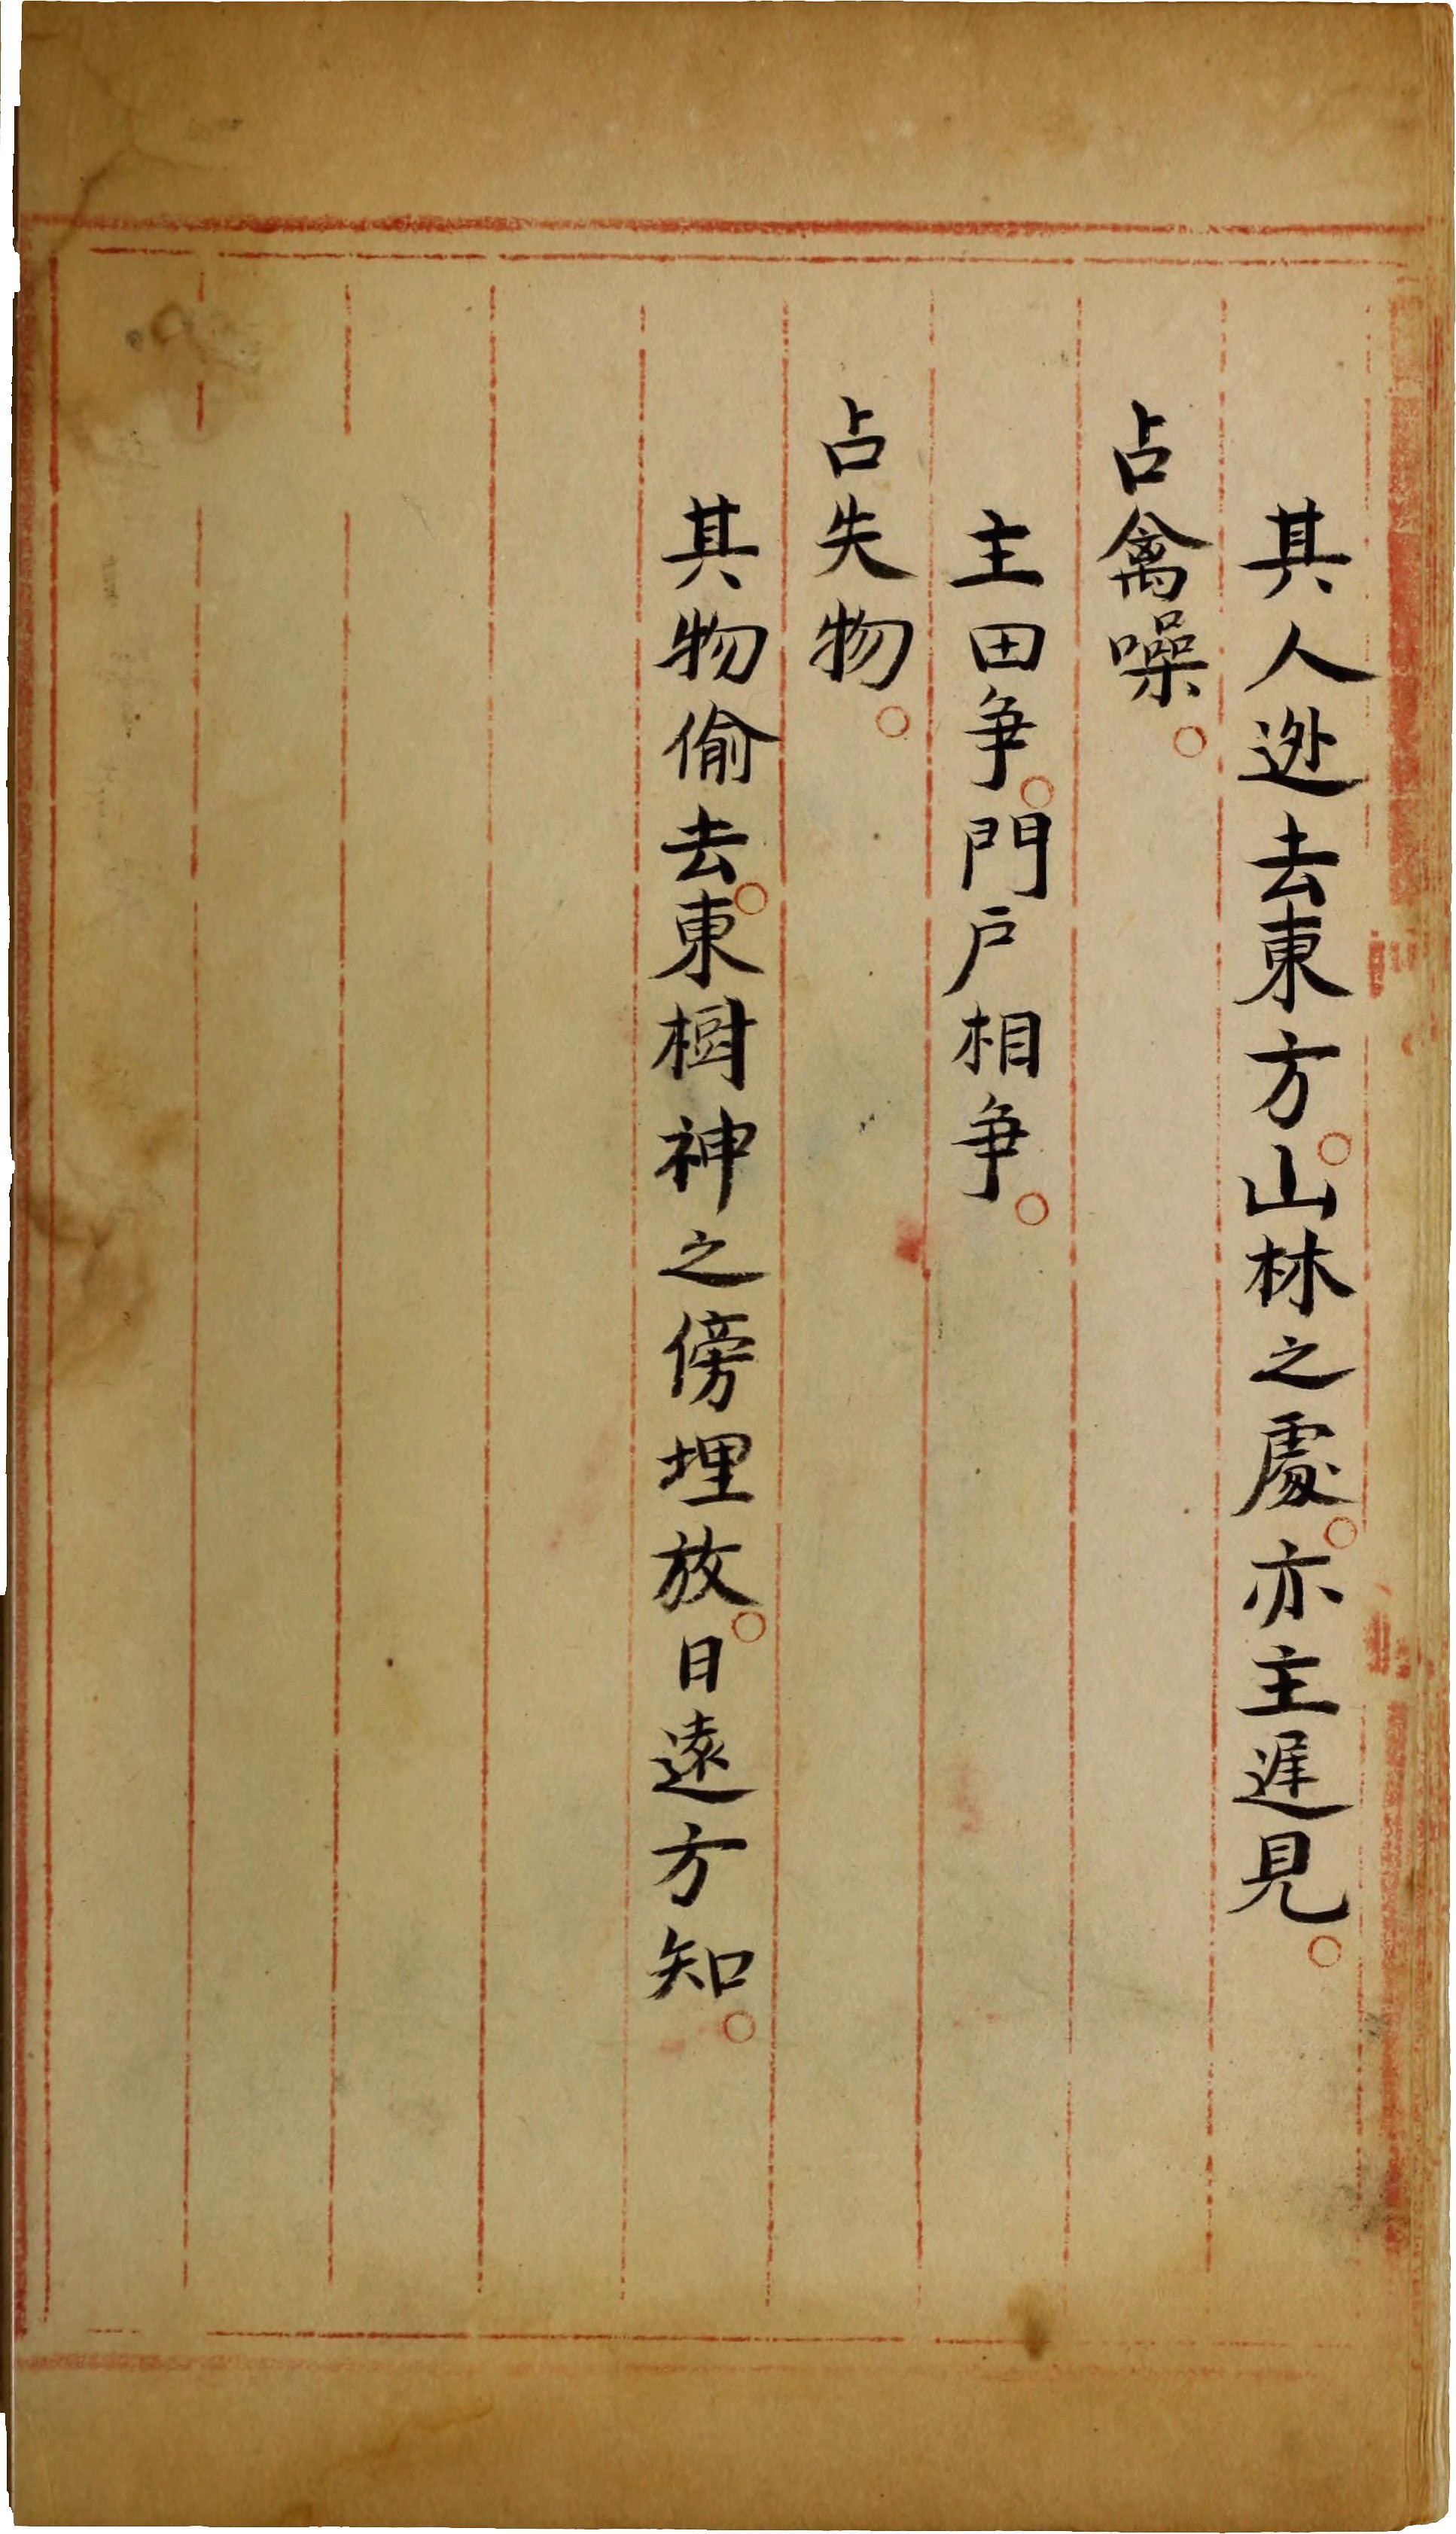 其人迯去東方○山林之處○亦主遅見○
占禽噪○
主田争○門戸相争○
占失物○
其物偷去○東樹神之傍埋放○日遠方知○